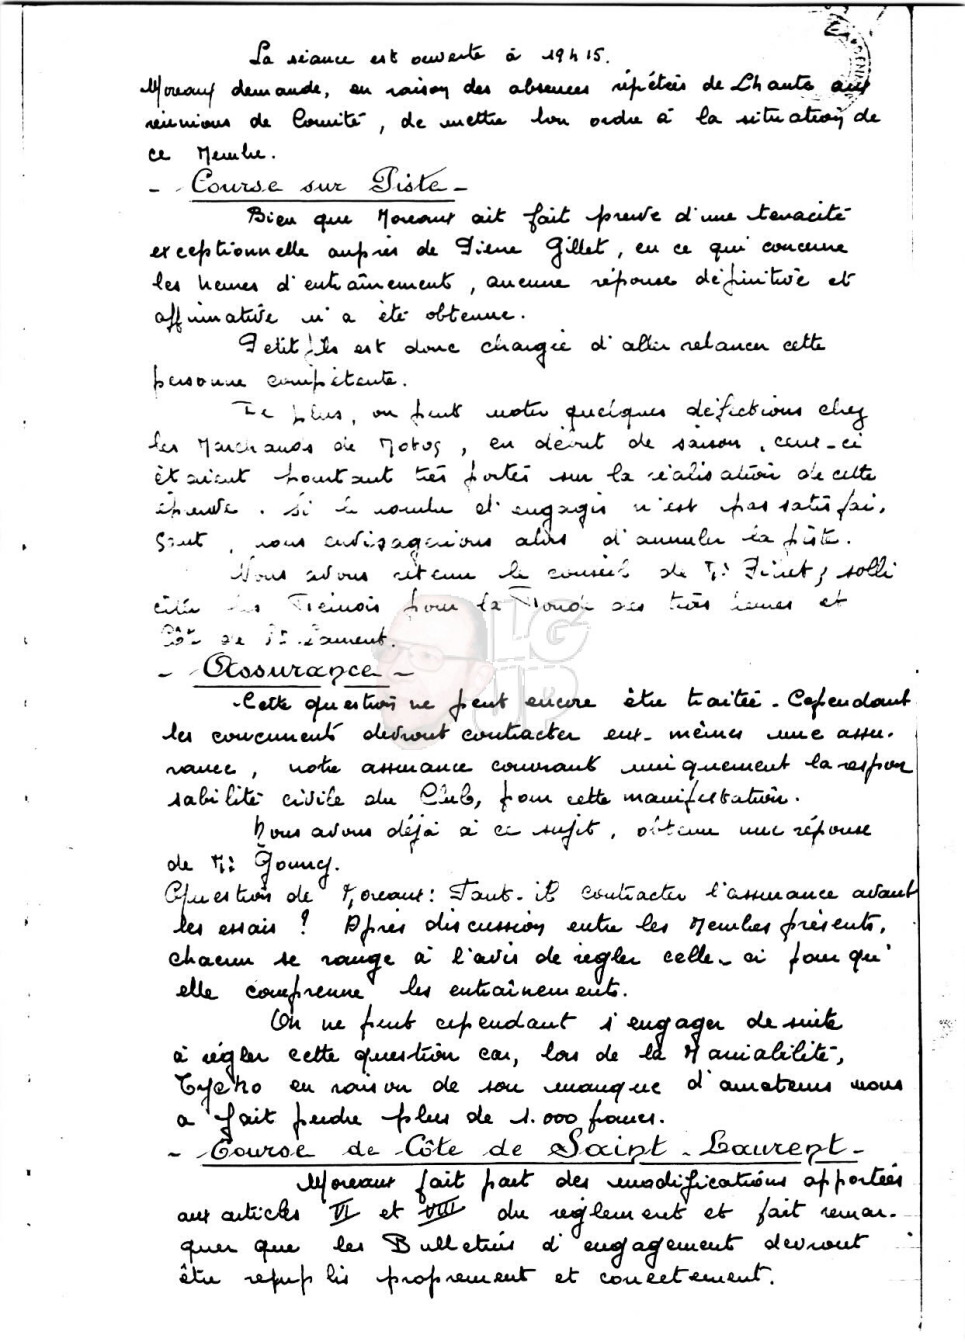 La séance est ouverte à 19h15.
Moreaux demande, en raison des absences répétées de Lhante aux
réunions de Comité, de mettre bon ordre à la situation de
ce Membre.
- Course sur Piste -
Bien que Moreaux ait fait preuve d'une tenacité
exceptionnelle auprès de Pierre Gillet, en ce qui concerne
les heures d'entraînement, aucune réponse définitive et
affirmative n'a été obtenue.
Petitfils est donc chargé d'aller relancer cette
personne compétente.
De plus, on peut noter quelques défections chez
les Marchands de Motos, en début de saison, ceux-ci
étaient pourtant très portés sur la réalisation de cette
épreuve. Si le nombre d'engagés n'est pas satisfai.
sant, nous envisagerions alors d'annuler la piste.
Nous avons retenu le conseil de Mr solli
citer les Rémois pour la Ronde des trois heures et
Côte de St. Laurent.
- Assurance -
Cette question ne peut encore être traitée. Cependant
les concurrents devront contracter eux-mêmes une assu.
rance, notre assurance couvrant uniquement la respon
sabilité civile du Club, pour cette manifestation.
Nous avons déjà à ce sujet, obtenu une réponse
de Mr Goury.
Question de Moreaux: Faut-il contracter l'assurance avant
les essais? Après discussion entre les Membres présents,
chacun se range à l'avis de régler celle-ci pour qu'
elle comprenne les entraînements.
On ne peut cependant s'engager de suite
à régler cette question car, lors de la Maniabilité,
en raison de son manque d'amateurs nous
a fait perdre plus de 1.000 francs.
- Course de Côte de Saint-Laurent -
Moreaux fait part des modifications apportées
aux articles VI et VIII du règlement et fait remar.
quer que les Bulletins d'engagement devront
être remplis proprement et correctement.
LG
UP